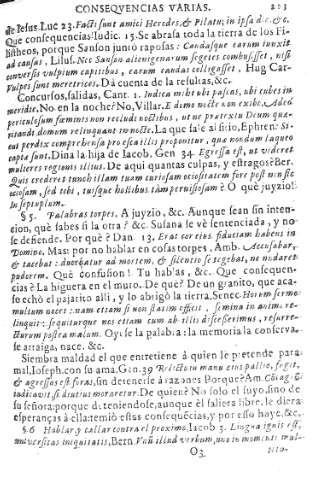 CONSEQVENCIAS VARIAS. 213
de Iesus. Luc 23. Facti sunt amici Herodes, & Pilatus in ipsa die &c.
Que consequencias! Iudic. 15. Se abrasa toda la tierra de los Fi-
listheos, porque Sanson juntó raposas: Caudasque earum iunxit
ad caudas, Lilus. Nec Sanson alienigenarum segetes combusisset, nisi
conversis vulpium capitibus, earum caudas colligasset, Hug Car.
Vulpes sunt meretrices. Dà cuenta de la resultas, &c.
Concursos, salidas, Cant. 1. Indica mihi ubi pascas, ubi cubes in
meridie. No en la noche? No, Villar. E domo nocte non exibo. Adeo
periculosum fæminis non recludi noctibus, ut ne prætextu Deum quæ-
ritandi domum relinquant in nocte. La que sale al sitio, Ephren: Si-
cut perdix comprehensa pro esca illis proponitur, qua nondum laqueo
capta sunt. Dina la hija de Iacob. Gen 34 Egressa est, ut videret
mulieres regionis illius. De aqui quantas culpas, y estragos? Ber.
Quis crederet tunc illam tuam curiosam otiositatem fore post non sic
otiosam, sed tibi, tuisque hostibus tam perniciosam? O què juyzio!
In septuplum.
§ 5. Palabras torpes. A juyzio, &c. Aunque sean sin inten-
cion, què sabes si la otra? &c. Susana se vè sentenciada, y no
se defiende. Por què? Dan 13. Erat cor eius fiduciam habens in
Domino. Mas: por no hablar en cosas torpes, Amb. Accusabar,
& tacebat: ducebatur ad mortem, & silentio se tegebat, ne nudaret
pudorem. Què confusion! Tu hablas, &c. Que consequen-
cias? La higuera en el muro. De què? De un granito, que aca-
so echò el pajarico alli, y lo abrigò la tierra, Senec. Horum sermo
multum nocet: nam etiam si non statim officit, semina in animo re-
linquit: sequiturque nos etiam cum ab illis discesserimus, resurre-
cturum postea malum. Oyese la palabra: la memoria la conserva,
se arraiga, nace. &c.
Siembra maldad el que entretiene à quien le pretende para
mal, Ioseph, con su ama, Gen. 39 Relicto in manu eius pallio, fugit,
& egressus est foras, sin detenerse à razones Porque? Am. Cõtagiũ
iudicavit, si diutius moraretur. De quien? No solo el suyo, sino de
su señora: porque deteniendose, aunque èl saliera libre, le diera
esperanças à ella: temiò estas consequẽcias, y por esso huye, &c.
§ 6 Hablar, y callar contra el proximo. Iacob 3. Lingua ignis est,
universitas iniquitatis, Bern Vnũ illud verbum, uno in momento mul-
O3 titu-